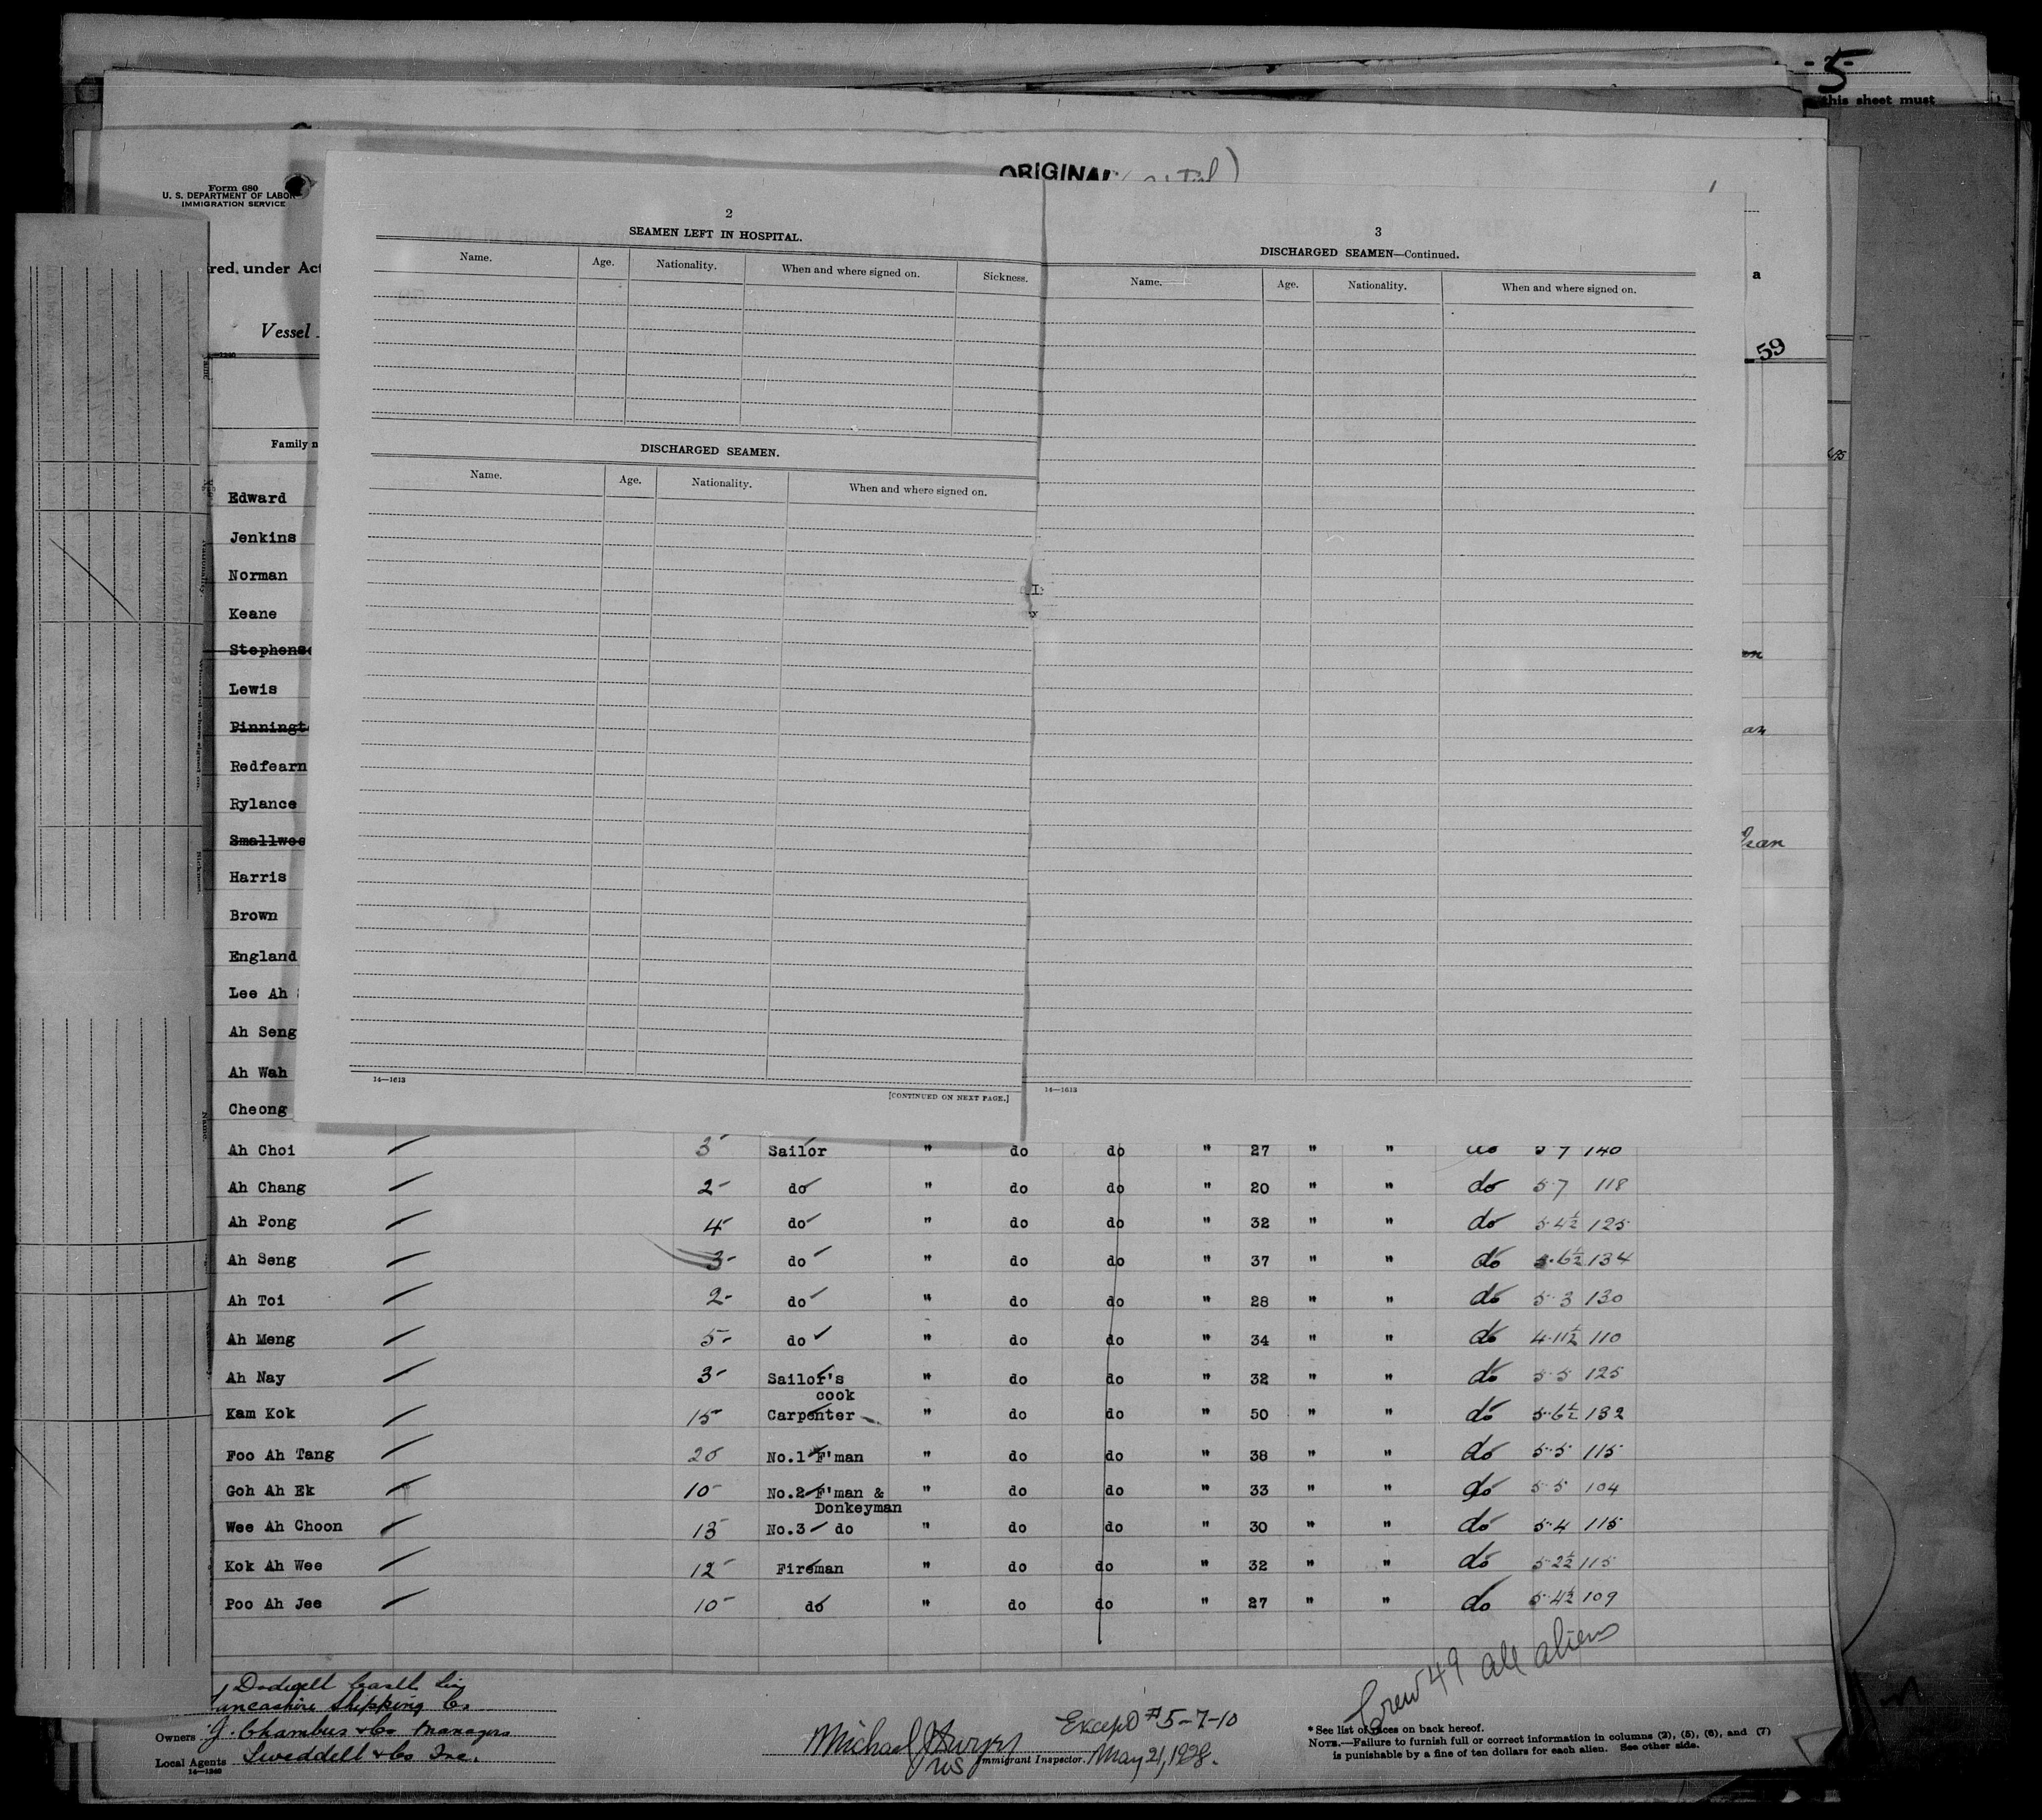 - 5 -
this sheet must
ORIGINAL
Form 680
U. S. DEPARTMENT OF LABOR
IMMIGRATION SERVICE
red, under Act
a
Vessel
59
14—1240
Family n
2
SEAMEN LEFT IN HOSPITAL.
Name. Age. Nationality. When and where signed on. Sickness.
DISCHARGED SEAMEN.
Name. Age. Nationality. When and where signed on.
14—1613
[CONTINUED ON NEXT PAGE.]
3
DISCHARGED SEAMEN—Continued.
Name. Age. Nationality. When and where signed on.
14—1613
Edward
Jenkins
Norman
Keane
Stephens
Lewis
Pinningt
Redfearn
Rylance
Smallwoo
Harris
Brown
England
Lee Ah
Ah Seng
Ah Wah
Cheong
Ah Choi 3 Sailor " do do " 27 " " do 5 7 140
Ah Chang 2 do " do do " 20 " " do 5 7 118
Ah Pong 4 do " do do " 32 " " do 5 4½ 125
Ah Seng 3 do " do do " 37 " " do 5 6½ 134
Ah Toi 2 do " do do " 28 " " do 5 3 130
Ah Meng 5 do " do do " 34 " " do 4 11½ 110
Ah Nay 3 Sailor's cook " do do " 32 " " do 5 5 125
Kam Kok 15 Carpenter " do do " 50 " " do 5 6½ 132
Foo Ah Tang 20 No.1 F'man " do do " 38 " " do 5 5 115
Goh Ah Ek 10 No.2 F'man & Donkeyman " do do " 33 " " do 5 5 104
Wee Ah Choon 13 No.3 do " do do " 30 " " do 5 4 115
Kok Ah Wee 12 Fireman " do do " 32 " " do 5 2½ 115
Poo Ah Jee 10 do " do do " 27 " " do 5 4½ 109
Crew 49 all aliens
Dodwell Castle Line
Lancashire Shipping Co
Owners J. Chambers & Co Managers
Local Agents Tweddell & Co Inc.
14—1240
Except #5-7-10
Michael
Immigrant Inspector. May 21, 1928.
* See list of races on back hereof.
NOTE.—Failure to furnish full or correct information in columns (2), (5), (6), and (7)
is punishable by a fine of ten dollars for each alien. See other side.